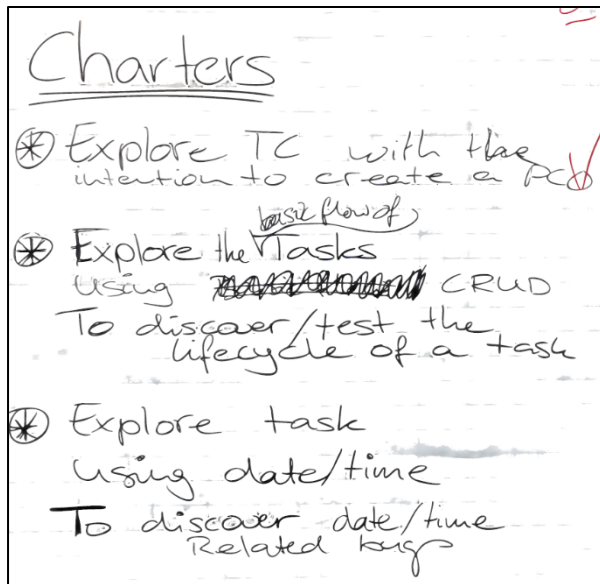 Charters
Explore TC with the
intention to create a PCO
basic flow of
Explore the Tasks
Using CRUD
To discover/test the
lifecycle of a task
Explore task
Using date/time
To discover date/time
Related bugs